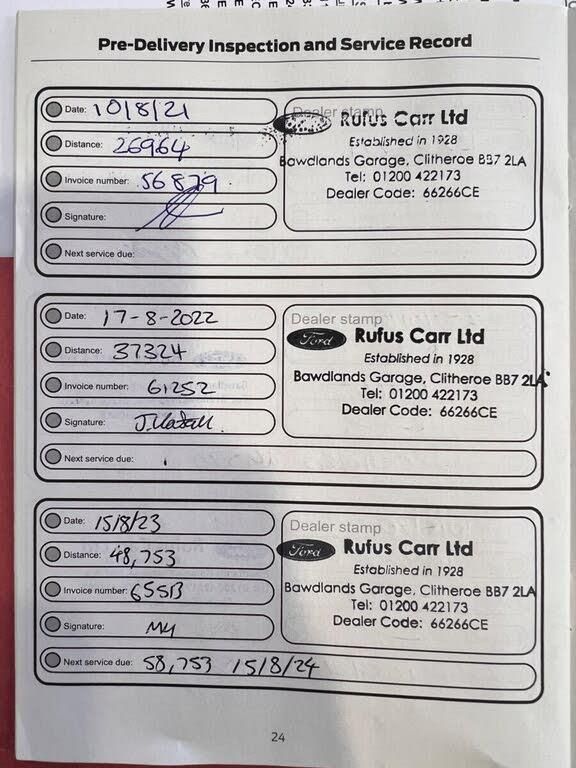 Pre-Delivery Inspection and Service Record
Date: 10/8/21
Distance: 26964
Invoice number: 56879
Signature:
Next service due:
Dealer stamp
Rufus Carr Ltd
Established in 1928
Bawdlands Garage, Clitheroe BB7 2LA
Tel: 01200 422173
Dealer Code: 66266CE
Date: 17-8-2022
Distance: 37324
Invoice number: 61252
Signature:
Next service due:
Dealer stamp
Ford Rufus Carr Ltd
Established in 1928
Bawdlands Garage, Clitheroe BB7 2LA
Tel: 01200 422173
Dealer Code: 66266CE
Date: 15/8/23
Distance: 48,753
Invoice number:
Signature:
Next service due: 58,753 15/8/24
Dealer stamp
Ford Rufus Carr Ltd
Established in 1928
Bawdlands Garage, Clitheroe BB7 2LA
Tel: 01200 422173
Dealer Code: 66266CE
24